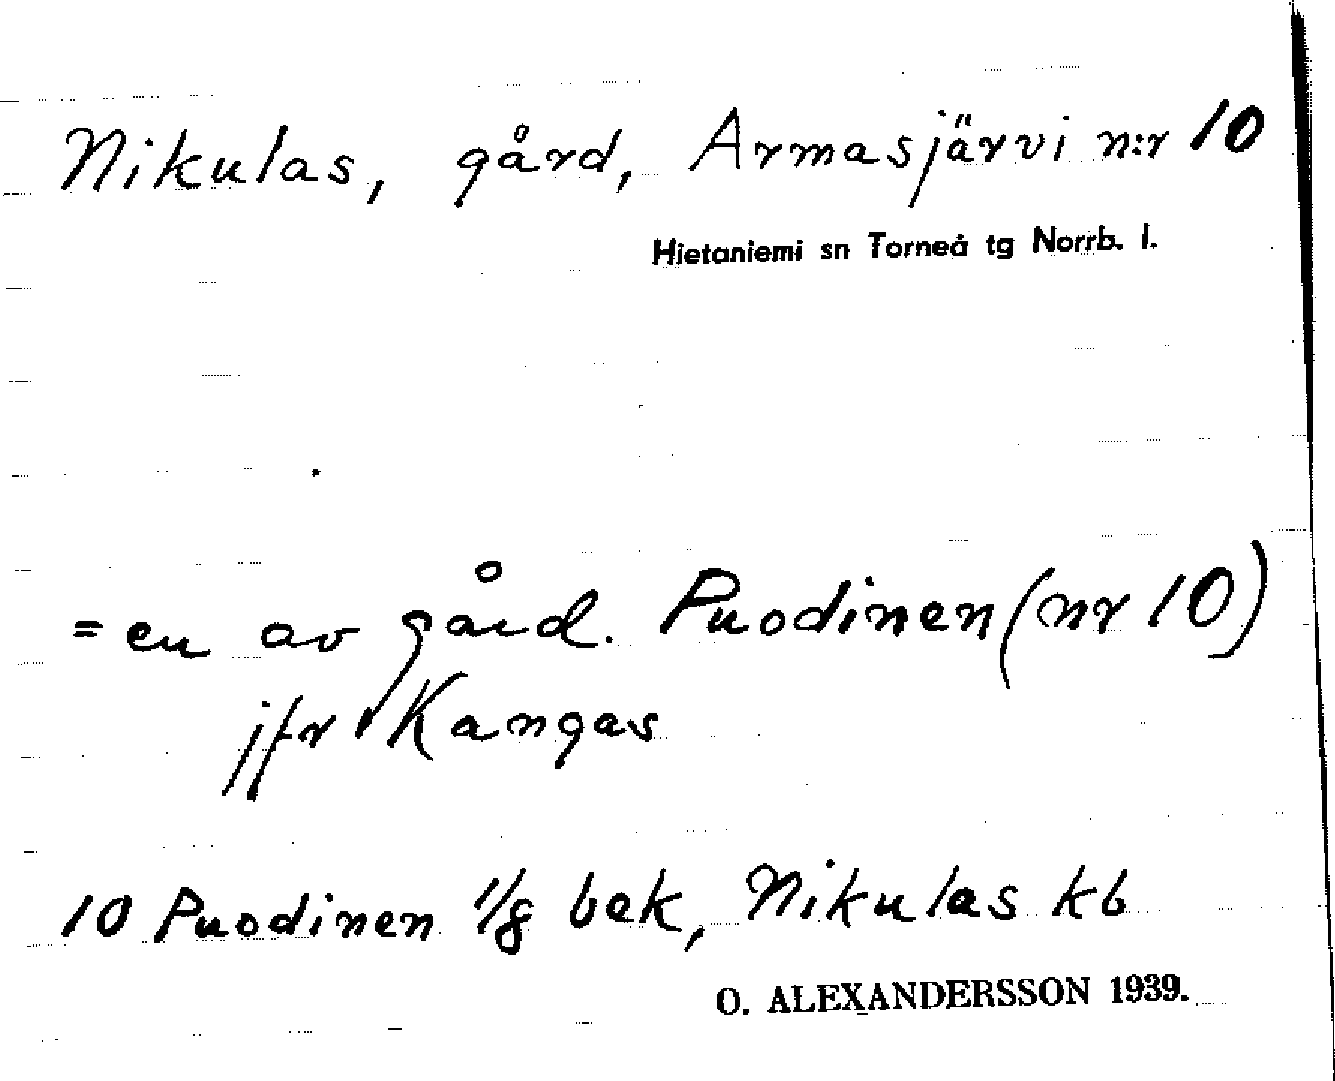 Nikulas, gård, Armasjärvi n:r 10
Hietaniemi sn Torneå tg Norrb. l.
= en av gård. Puodinen (nr 10)
jfr Kangas
10 Puodinen 1/8 bek, Nikulas kb
O. ALEXANDERSSON 1939.